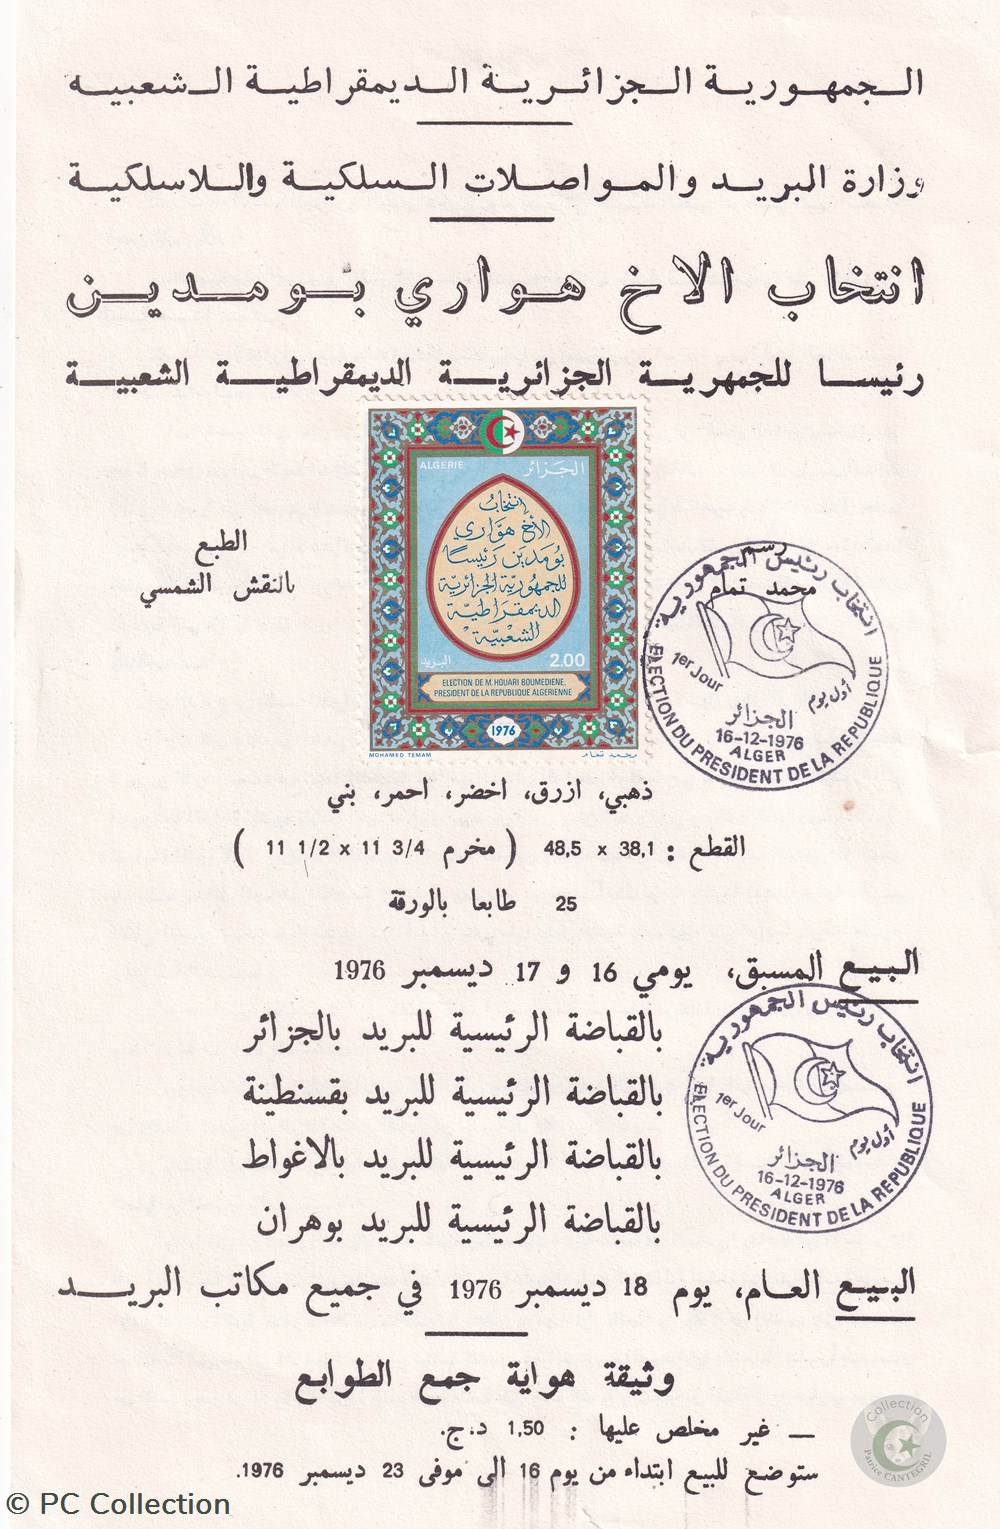 الجمهورية الجزائرية الديمقراطية الشعبيه
وزارة البريد والمواصلات السلكية واللاسلكية
انتخاب الاخ هواري بومدين
رئيسا للجمهرية الجزائرية الديمقراطية الشعبية
ALGERIE الجزائر
إنتخاب
الأخ هوّاري
بومدين رئيسًا
للجمهوريّة الجزائريّة
الديمقراطيّة
الشعبيّة
البريد 2.00
ELECTION DE M. HOUARI BOUMEDIENE,
PRESIDENT DE LA REPUBLIQUE ALGERIENNE
1976
MOHAMED TEMAM محمد تمام
الطبع
بالنقش الشمسي
رسم
محمد تمام
انتخاب رئيس الجمهورية
1er Jour أول يوم
الجزائر
16-12-1976
ALGER
ELECTION DU PRESIDENT DE LA REPUBLIQUE
ذهبي، ازرق، اخضر، احمر، بني
القطع : 38,1 x 48,5 ( مخرم 11 3/4 x 11 1/2 )
25 طابعا بالورقة
البيع المسبق، يومي 16 و 17 ديسمبر 1976
بالقباضة الرئيسية للبريد بالجزائر
بالقباضة الرئيسية للبريد بقسنطينة
بالقباضة الرئيسية للبريد بالاغواط
بالقباضة الرئيسية للبريد بوهران
انتخاب رئيس الجمهورية
1er Jour أول يوم
الجزائر
16-12-1976
ALGER
ELECTION DU PRESIDENT DE LA REPUBLIQUE
البيع العام، يوم 18 ديسمبر 1976 في جميع مكاتب البريد
وثيقة هواية جمع الطوابع
— غير مخلص عليها : 1,50 د.ج.
ستوضع للبيع ابتداء من يوم 16 الى موفى 23 ديسمبر 1976.
Collection
Patrice CANTEGRIL
© PC Collection